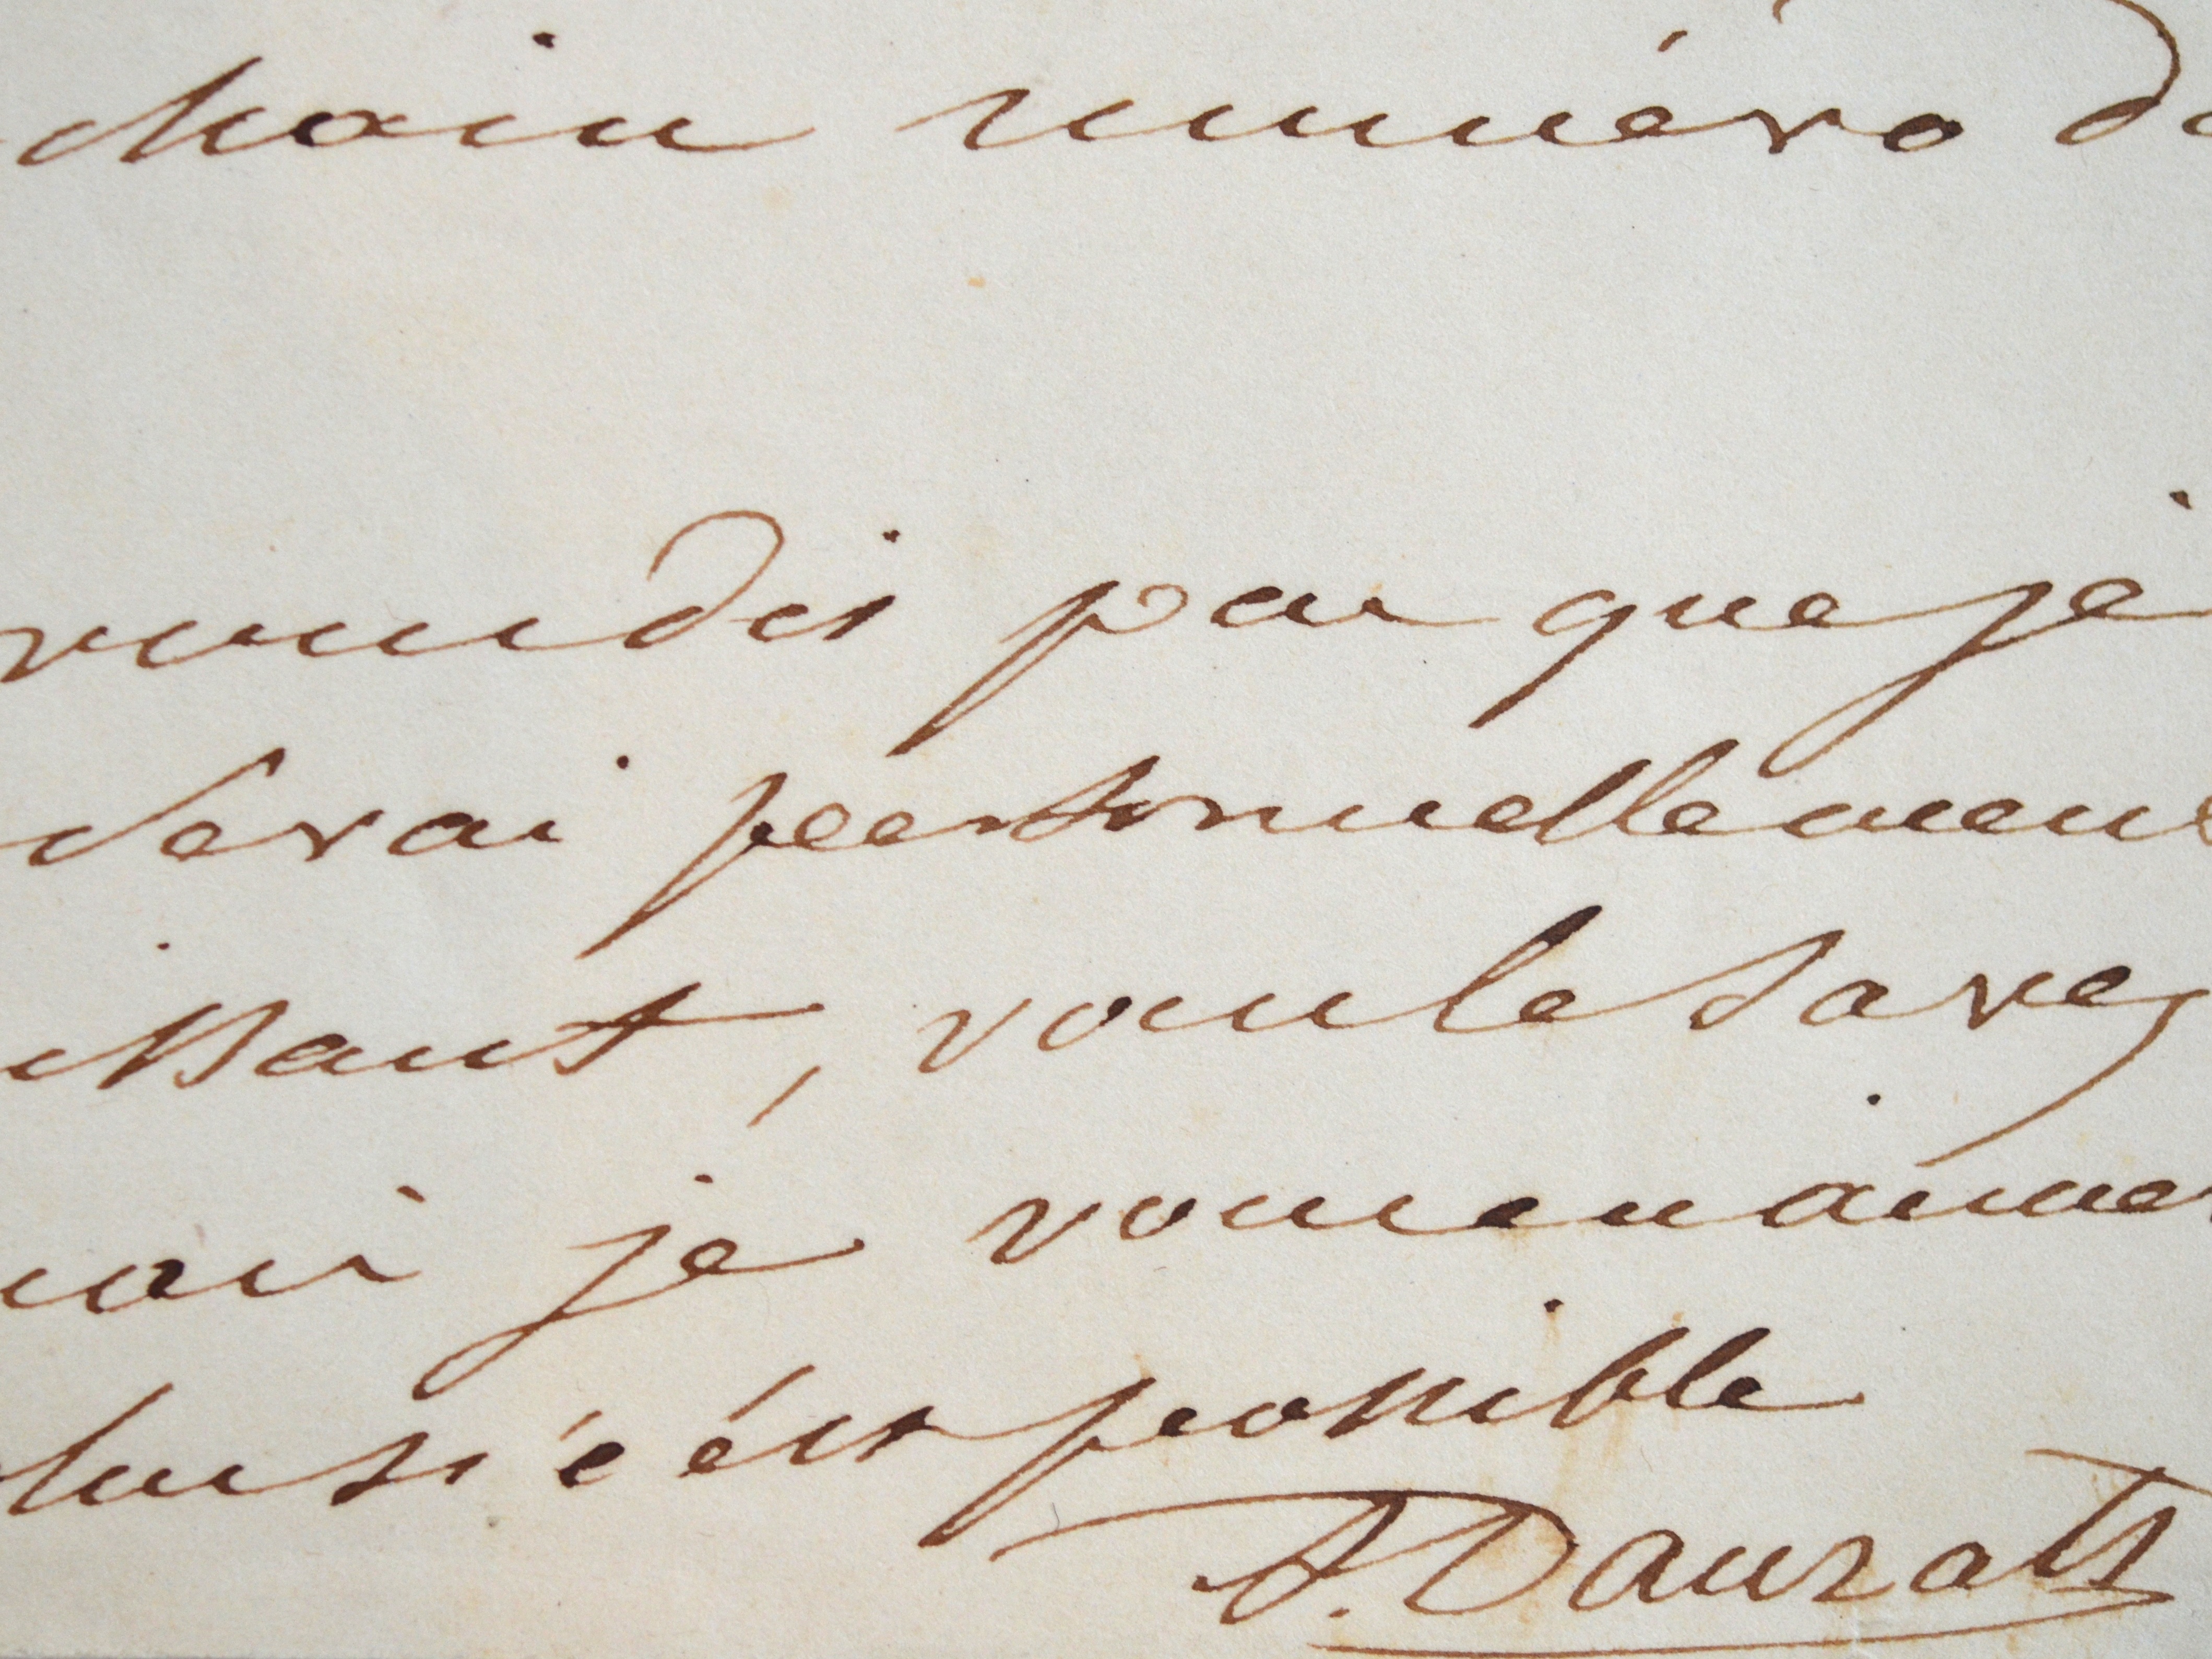 chain numéro de
vous dis pas que je
serai personnellement
issant, vous le savez
mais je vous en aimer
plus si c'est possible
A. Dauzats